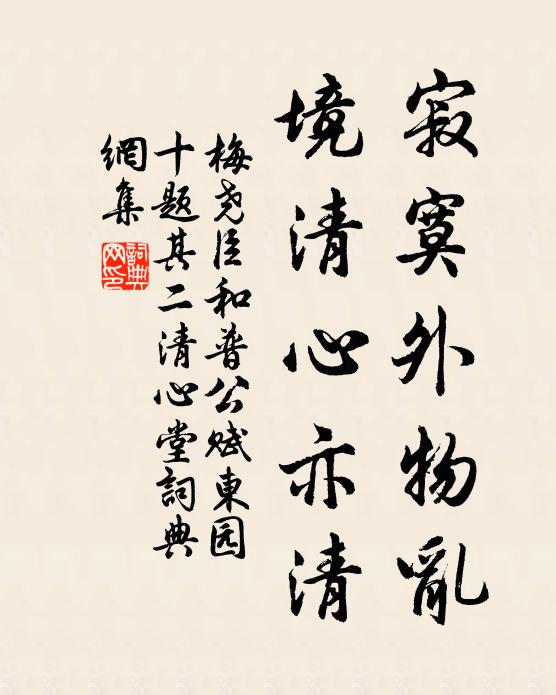 寂寞外物亂
境清心亦清
梅尧臣和普公赋東园
十题其二清心堂詞典
網集
詞典網印